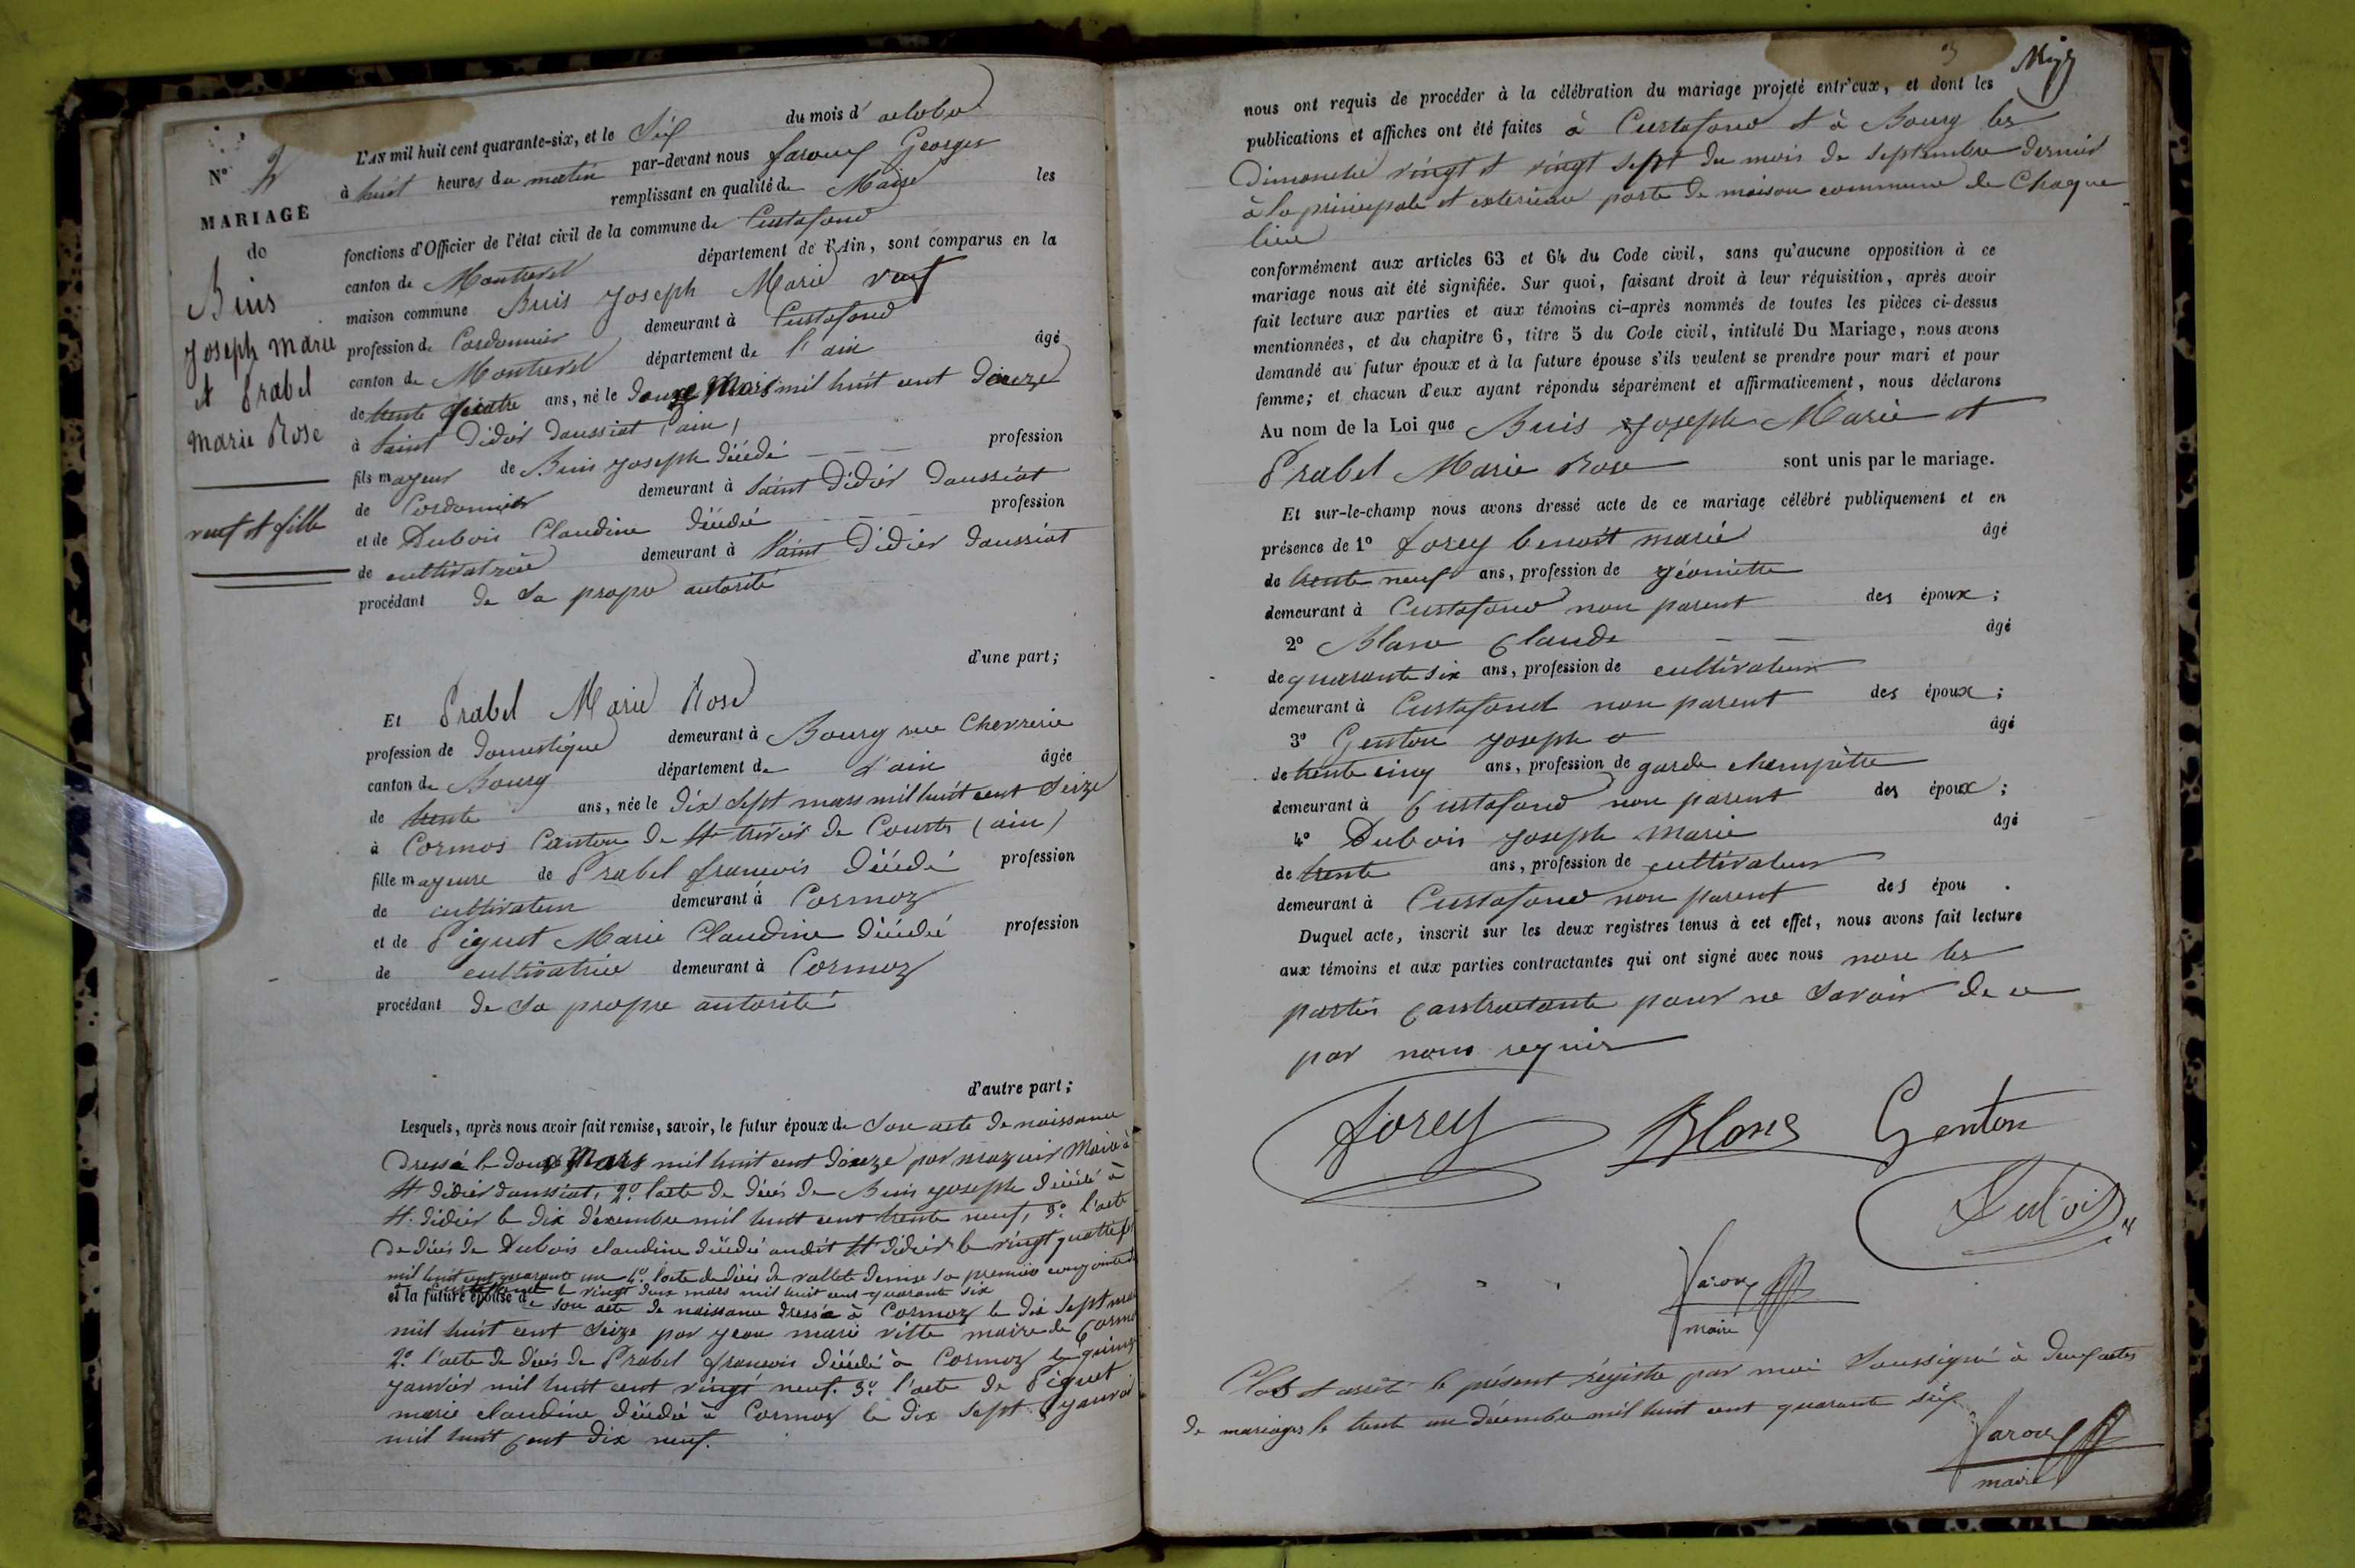 N° 2
MARIAGE
de
Buis
Joseph Marie
et Prabel
Marie Rose
veuf et fille
L'AN mil huit cent quarante-six, et le Six du mois d' octobre
à huit heures du matin par-devant nous Georges
remplissant en qualité de Maire les
fonctions d'Officier de l'état civil de la commune de Curtafond
canton de Montrevel département de l'Ain, sont comparus en la
maison commune Buis Joseph Marie veuf
profession de Cordonnier demeurant à Curtafond
canton de Montrevel département de l'ain âgé
de trente quatre ans, né le douze Mars mil huit cent douze
à Saint Didier daussiat (ain)
fils mayeur de Buis Joseph décédé profession
de Cordonnier demeurant à Saint Didier daussiat
et de Dubois Claudine décédée profession
de cultivatrice demeurant à Saint Didier daussiat
procédant de sa propre autorité
d'une part;
Et Prabel Marie Rose
profession de domestique demeurant à Bourg rue Chevrerie
canton de Bourg département de d'ain âgée
de trente ans, née le dix sept mars mil huit cent seize
à Cormos Canton de St trivier de Courts (ain)
fille mayeure de Prabel francois décédé profession
de cultivateur demeurant à Cormoz
et de Piguet Marie Claudine décédée profession
de cultivatrice demeurant à Cormoz
procédant de sa propre autorité
d'autre part;
Lesquels, après nous avoir fait remise, savoir, le futur époux de Son acte de naissance
dressé le douze Mars mil huit cent douze par Maire à
St didier daussiat, 2° l'acte de décès de Buis joseph décédé à
St. didier le dix décembre mil huit cent trente neuf, 3° l'acte
de décès de Dubois claudine décédée audit St didier le vingt quatre
mil huit cent quarante un 4° l'acte de décès de vallet denise sa première conjointe
à Curtafond le vingt deux mars mil huit cent quarante six
et la future épouse de son acte de naissance dressé à Cormoz le dix sept mars
mil huit cent seize par jean marie maire de Cormoz
2° l'acte de décès de Prabel francois décédé à Cormoz le quinze
janvier mil huit cent vingt neuf. 3° l'acte de Piguet
marie claudine décédée à Cormoz le dix sept janvier
mil huit cent dix neuf.
3
nous ont requis de procéder à la célébration du mariage projeté entr'eux, et dont les
publications et affiches ont été faites à Curtafond et à Bourg les
Dimanche vingt et vingt sept du mois de septembre dernier
à la principale et exterieur porte de maison commune de Chaque
lieu
conformément aux articles 63 et 64 du Code civil, sans qu'aucune opposition à ce
mariage nous ait été signifiée. Sur quoi, faisant droit à leur réquisition, après avoir
fait lecture aux parties et aux témoins ci-après nommés de toutes les pièces ci-dessus
mentionnées, et du chapitre 6, titre 5 du Code civil, intitulé Du Mariage, nous avons
demandé au futur époux et à la future épouse s'ils veulent se prendre pour mari et pour
femme; et chacun d'eux ayant répondu séparément et affirmativement, nous déclarons
Au nom de la Loi que Buis Joseph Marie et
Prabel Marie Rose sont unis par le mariage.
Et sur-le-champ nous avons dressé acte de ce mariage célébré publiquement et en
présence de 1° Forey benoit marie âgé
de trente neuf ans, profession de géomètre
demeurant à Curtafond non parent des époux;
2° Blanc Claude âgé
de quarante six ans, profession de cultivateur
demeurant à Curtafond non parent des époux;
3° Genton Joseph âgé
de trente cinq ans, profession de garde champètre
demeurant à Curtafond non parent des époux;
4° Dubois Joseph Marie âgé
de trente ans, profession de cultivateur
demeurant à Curtafond non parent des épou .
Duquel acte, inscrit sur les deux registres tenus à cet effet, nous avons fait lecture
aux témoins et aux parties contractantes qui ont signé avec nous non les
parties contractante pour ne savoir de ce
par nous requis
Forey Blanc Genton
Dubois
maire
Clos et arrêté le présent régistre par moi Soussigné à deux actes
de mariages le trente un décembre mil huit cent quarante six
maire